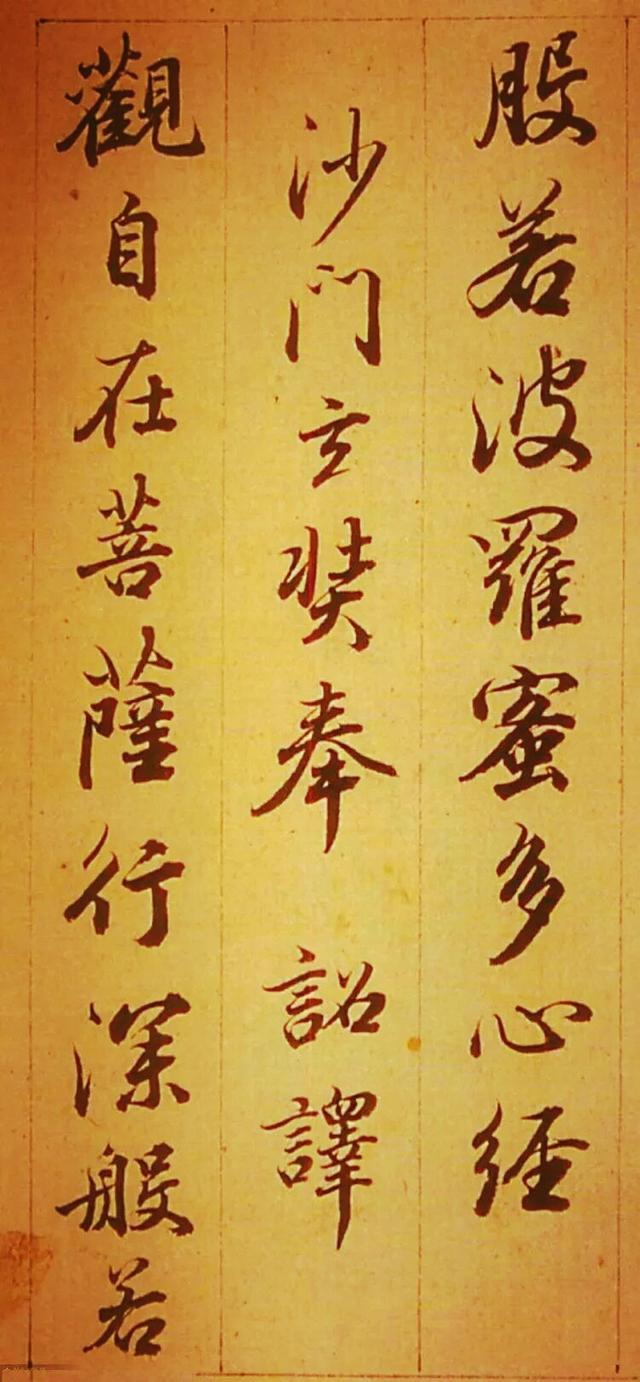 股若波羅蜜多心経
沙門玄奘奉 詔譯
觀自在菩薩行深般若